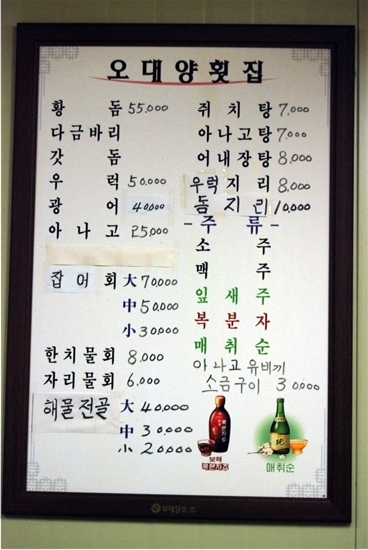 오대양횟집
황 돔 55,000
다금바리
갓 돔
우 럭 50,000
광 어 40,000
아 나 고 25,000
잡어회 大 70,000
中 50,000
小 30,000
한치물회 8,000
자리물회 6,000
해물전골 大 40,000
中 30,000
小 20,000
쥐치탕 7,000
아나고탕 7,000
어내장탕 8,000
우럭지리 8,000
돔지리 10,000
- 주 류 -
소 주
맥 주
잎새주
복분자
매취순
아나고 유비끼
소금구이 30,000
보해
복분자주
매취순
보해양조(주)